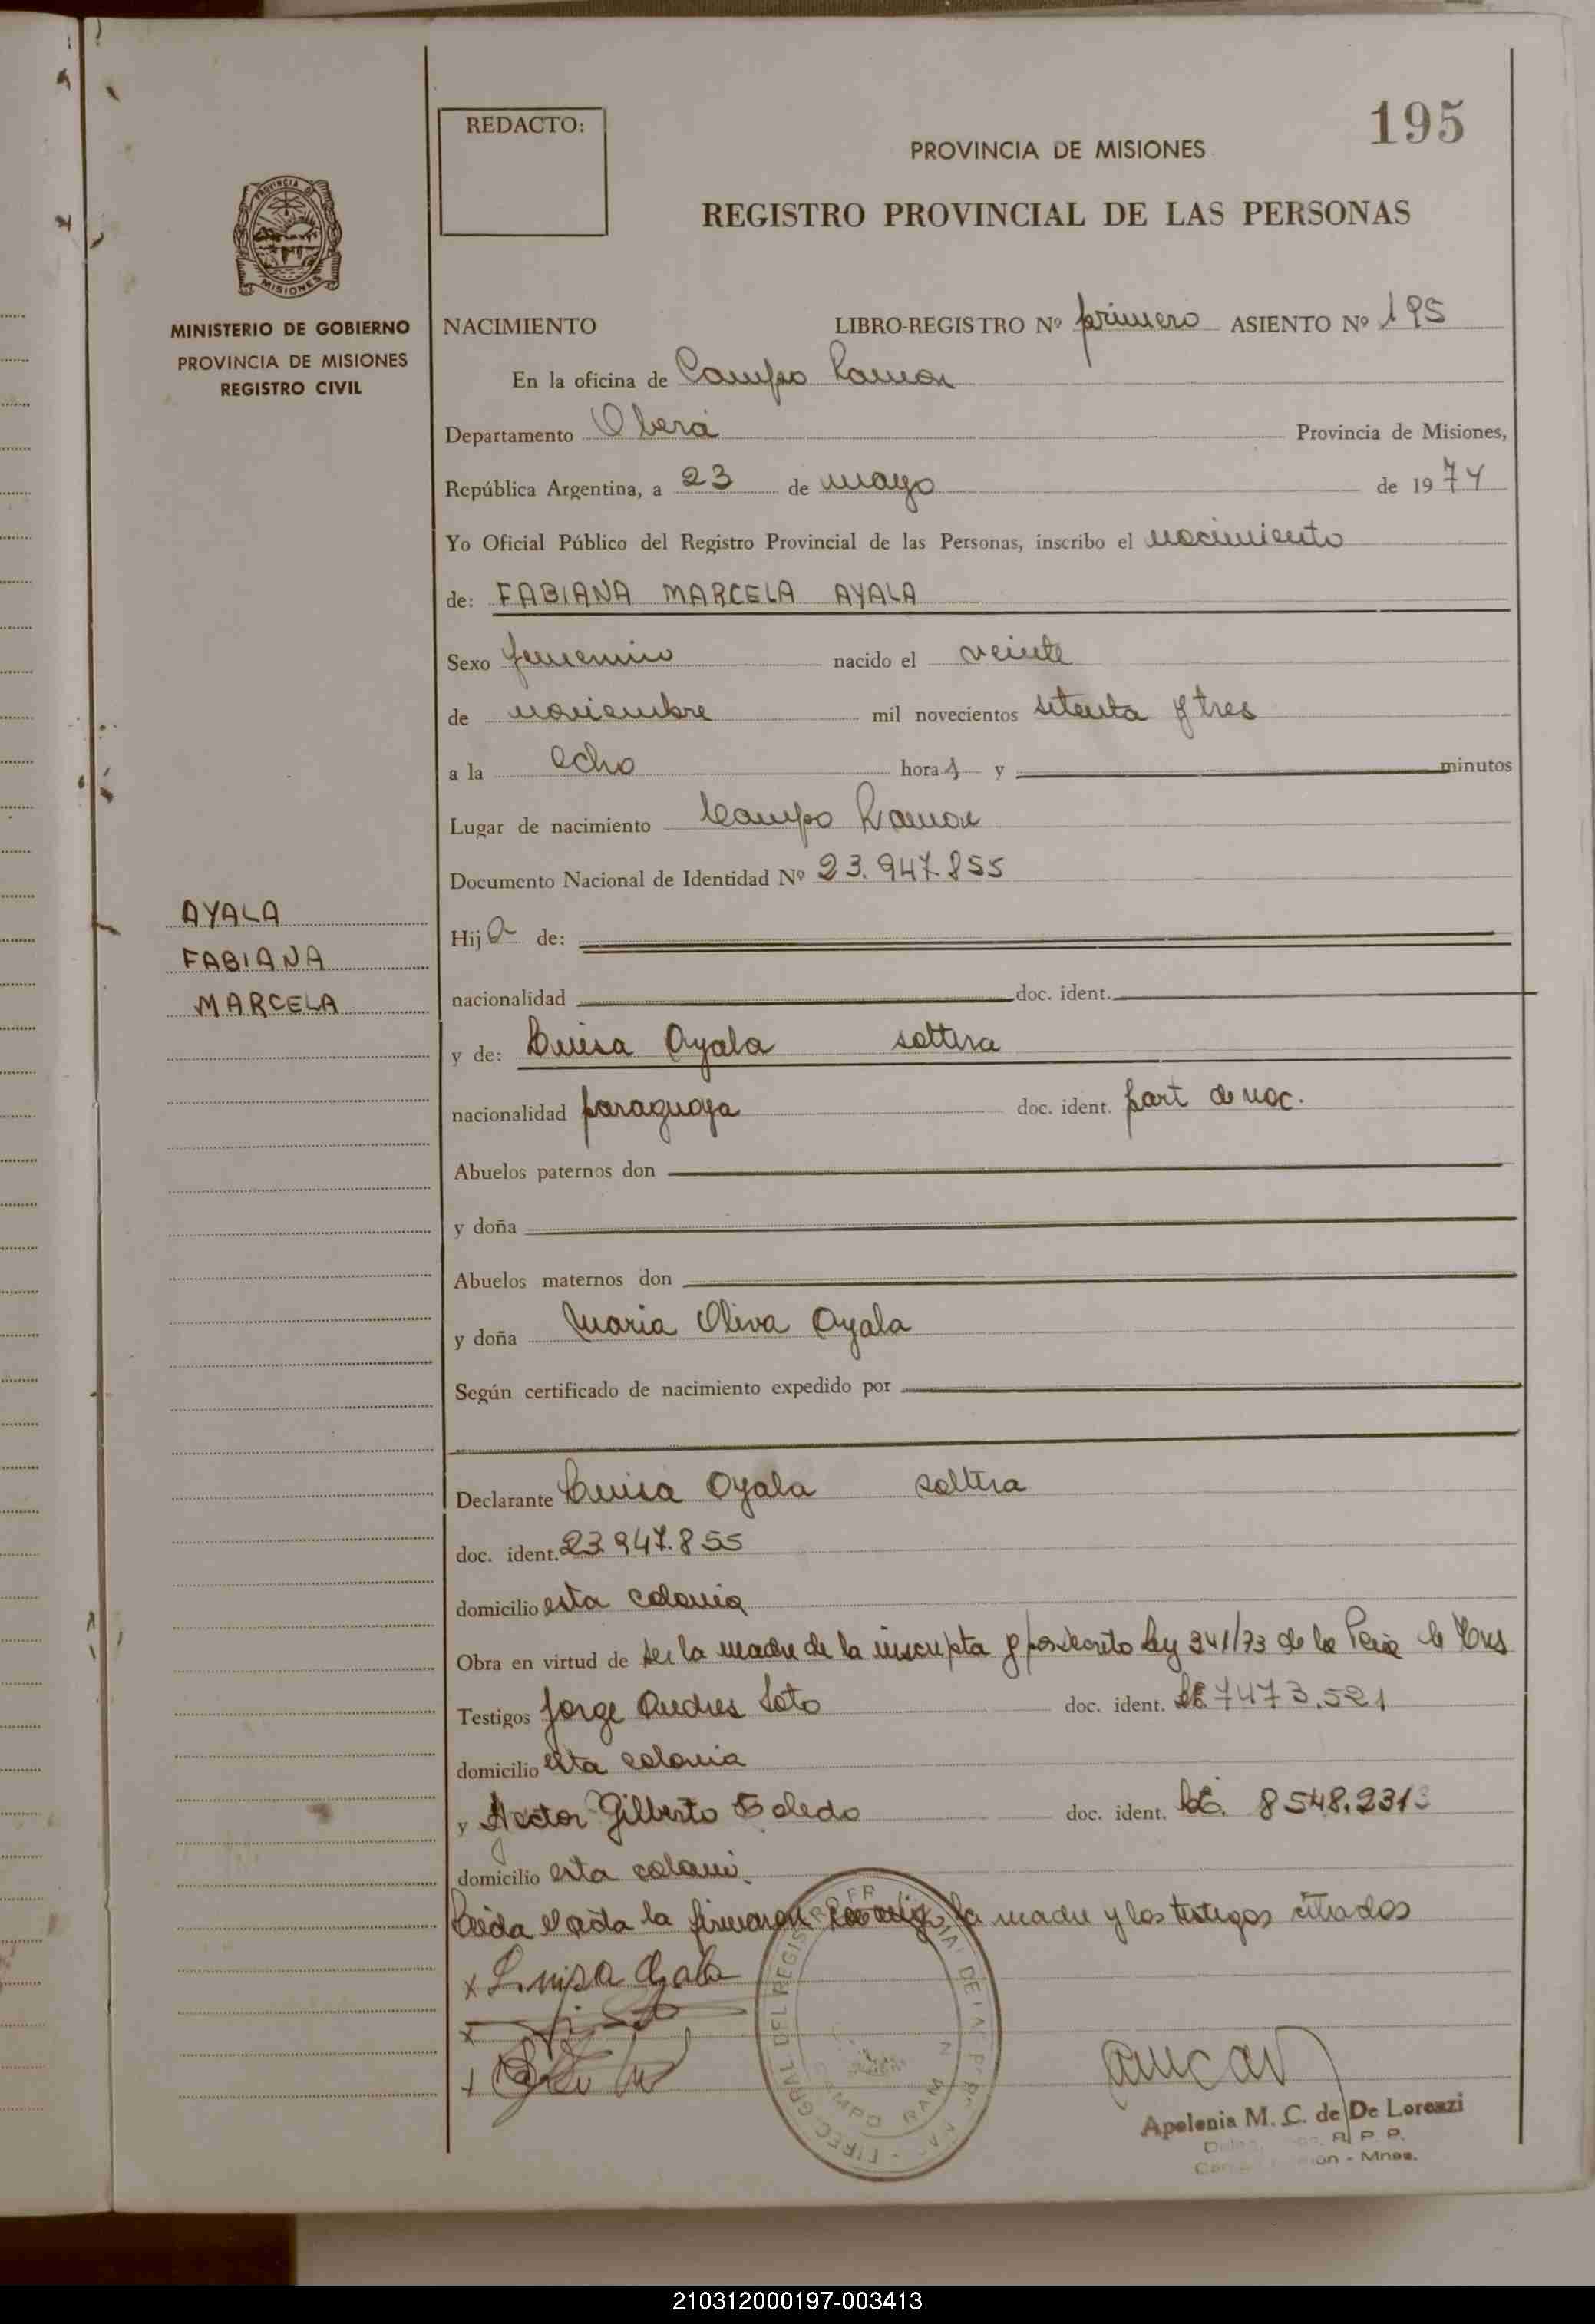 195
REDACTO:
PROVINCIA DE MISIONES
REGISTRO PROVINCIAL DE LAS PERSONAS
PROVINCIA DE
MISIONES
MINISTERIO DE GOBIERNO
PROVINCIA DE MISIONES
REGISTRO CIVIL
NACIMIENTO LIBRO-REGISTRO Nº primero ASIENTO Nº 195
En la oficina de Campo Ramon
Departamento Oberá Provincia de Misiones,
República Argentina, a 23 de mayo de 1974
Yo Oficial Público del Registro Provincial de las Personas, inscribo el nacimiento
de: FABIANA MARCELA AYALA
Sexo femenino nacido el veinte
de noviembre mil novecientos setenta y tres
a la ocho hora s y minutos
Lugar de nacimiento Campo Ramon
Documento Nacional de Identidad Nº 23.947.855
AYALA
FABIANA
MARCELA
Hija de:
nacionalidad doc. ident.
y de: Luisa Ayala soltera
nacionalidad paraguaya doc. ident. part de nac.
Abuelos paternos don
y doña
Abuelos maternos don
y doña Maria Oliva Ayala
Según certificado de nacimiento expedido por
Declarante Luisa Ayala soltera
doc. ident. 23.947.855
domicilio esta colonia
Obra en virtud de ser la madre de la inscripta y por decreto Ley 341/73 de la Pcia de Mnes
Testigos Jorge Andres Soto doc. ident. LE 7473.521
domicilio esta colonia
y Hector Gilberto Toledo doc. ident. LE. 8548.2313
domicilio esta coloni.
Leida el acta la firmaron conmigo la madre y los testigos citados
x Luisa Ayala
x
x
DIREC. GRAL. DEL REGISTRO PROVINCIAL DE LAS PERSONAS
CAMPO RAMON
Apolonia M. C. de De Lorenzi
R. P. P.
Campo Ramón - Mnes.
210312000197-003413